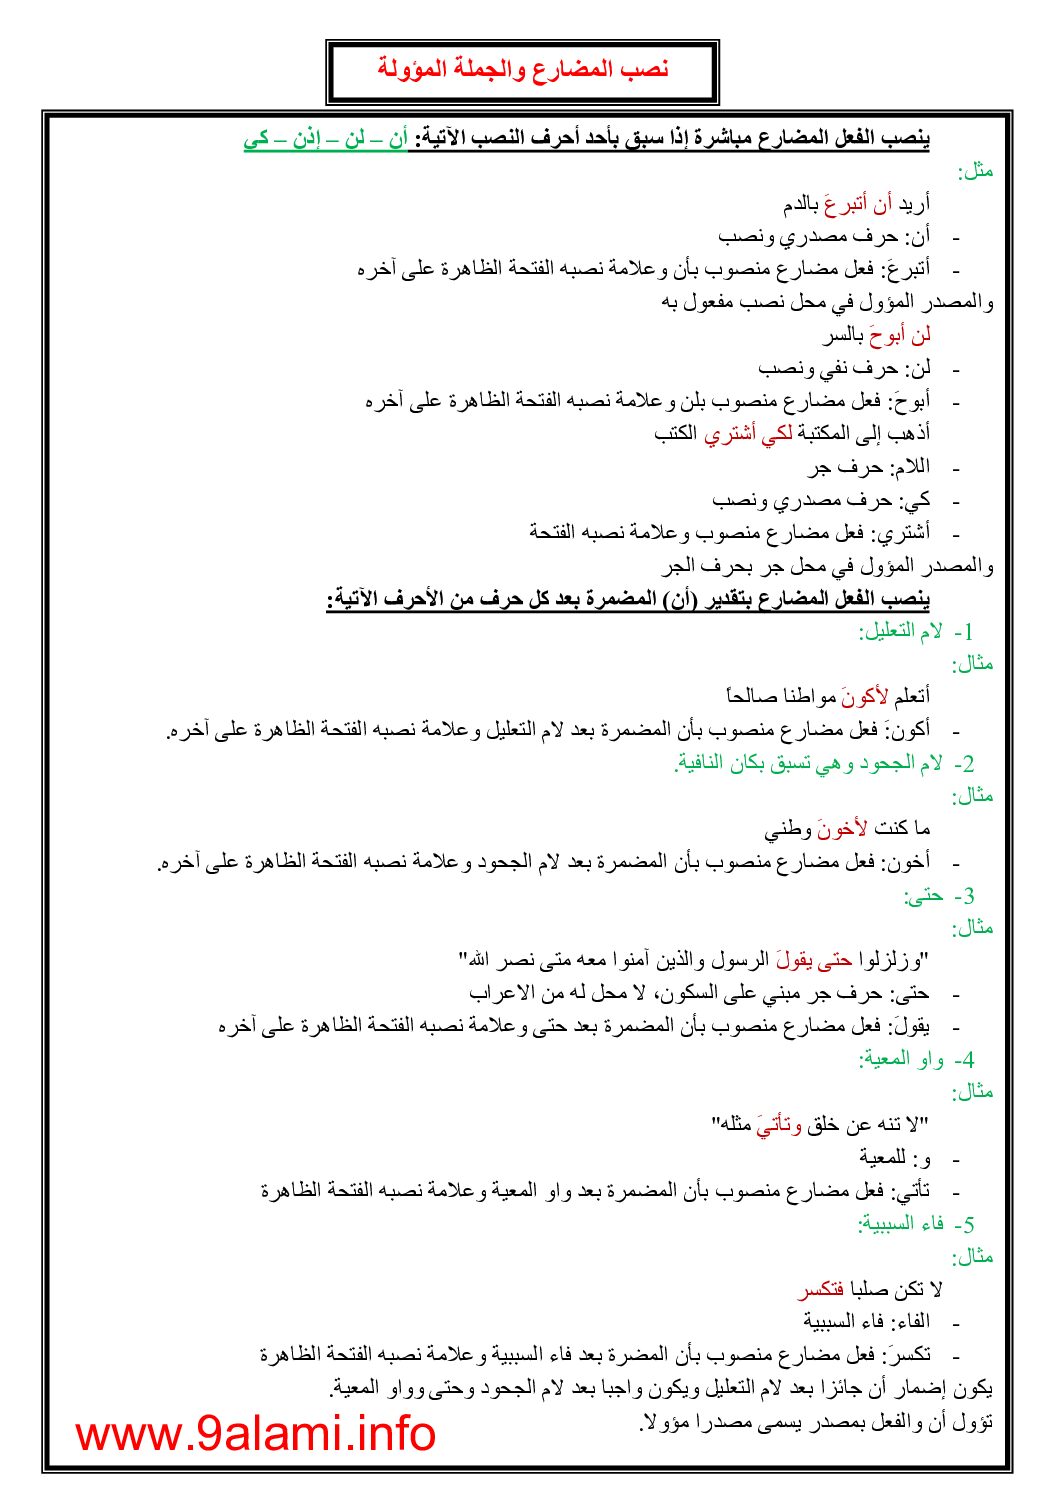 نصب المضارع والجملة المؤولة
ينصب الفعل المضارع مباشرة إذا سبق بأحد أحرف النصب الآتية: أن – لن – إذن – كي
مثل:
أريد أن أتبرعَ بالدم
- أن: حرف مصدري ونصب
- أتبرعَ: فعل مضارع منصوب بأن وعلامة نصبه الفتحة الظاهرة على آخره
والمصدر المؤول في محل نصب مفعول به
لن أبوحَ بالسر
- لن: حرف نفي ونصب
- أبوحَ: فعل مضارع منصوب بلن وعلامة نصبه الفتحة الظاهرة على آخره
أذهب إلى المكتبة لكي أشتري الكتب
- اللام: حرف جر
- كي: حرف مصدري ونصب
- أشتري: فعل مضارع منصوب وعلامة نصبه الفتحة
والمصدر المؤول في محل جر بحرف الجر
ينصب الفعل المضارع بتقدير (أن) المضمرة بعد كل حرف من الأحرف الآتية:
1- لام التعليل:
مثال:
أتعلم لأكونَ مواطنا صالحاً
- أكونَ: فعل مضارع منصوب بأن المضمرة بعد لام التعليل وعلامة نصبه الفتحة الظاهرة على آخره.
2- لام الجحود وهي تسبق بكان النافية.
مثال:
ما كنت لأخونَ وطني
- أخون: فعل مضارع منصوب بأن المضمرة بعد لام الجحود وعلامة نصبه الفتحة الظاهرة على آخره.
3- حتى:
مثال:
"وزلزلوا حتى يقولَ الرسول والذين آمنوا معه متى نصر الله"
- حتى: حرف جر مبني على السكون، لا محل له من الاعراب
- يقولَ: فعل مضارع منصوب بأن المضمرة بعد حتى وعلامة نصبه الفتحة الظاهرة على آخره
4- واو المعية:
مثال:
"لا تنه عن خلق وتأتيَ مثله"
- و: للمعية
- تأتي: فعل مضارع منصوب بأن المضمرة بعد واو المعية وعلامة نصبه الفتحة الظاهرة
5- فاء السببية:
مثال:
لا تكن صلبا فتكسر
- الفاء: فاء السببية
- تكسرَ: فعل مضارع منصوب بأن المضرة بعد فاء السببية وعلامة نصبه الفتحة الظاهرة
يكون إضمار أن جائزا بعد لام التعليل ويكون واجبا بعد لام الجحود وحتى وواو المعية.
تؤول أن والفعل بمصدر يسمى مصدرا مؤولا.
www.9alami.info